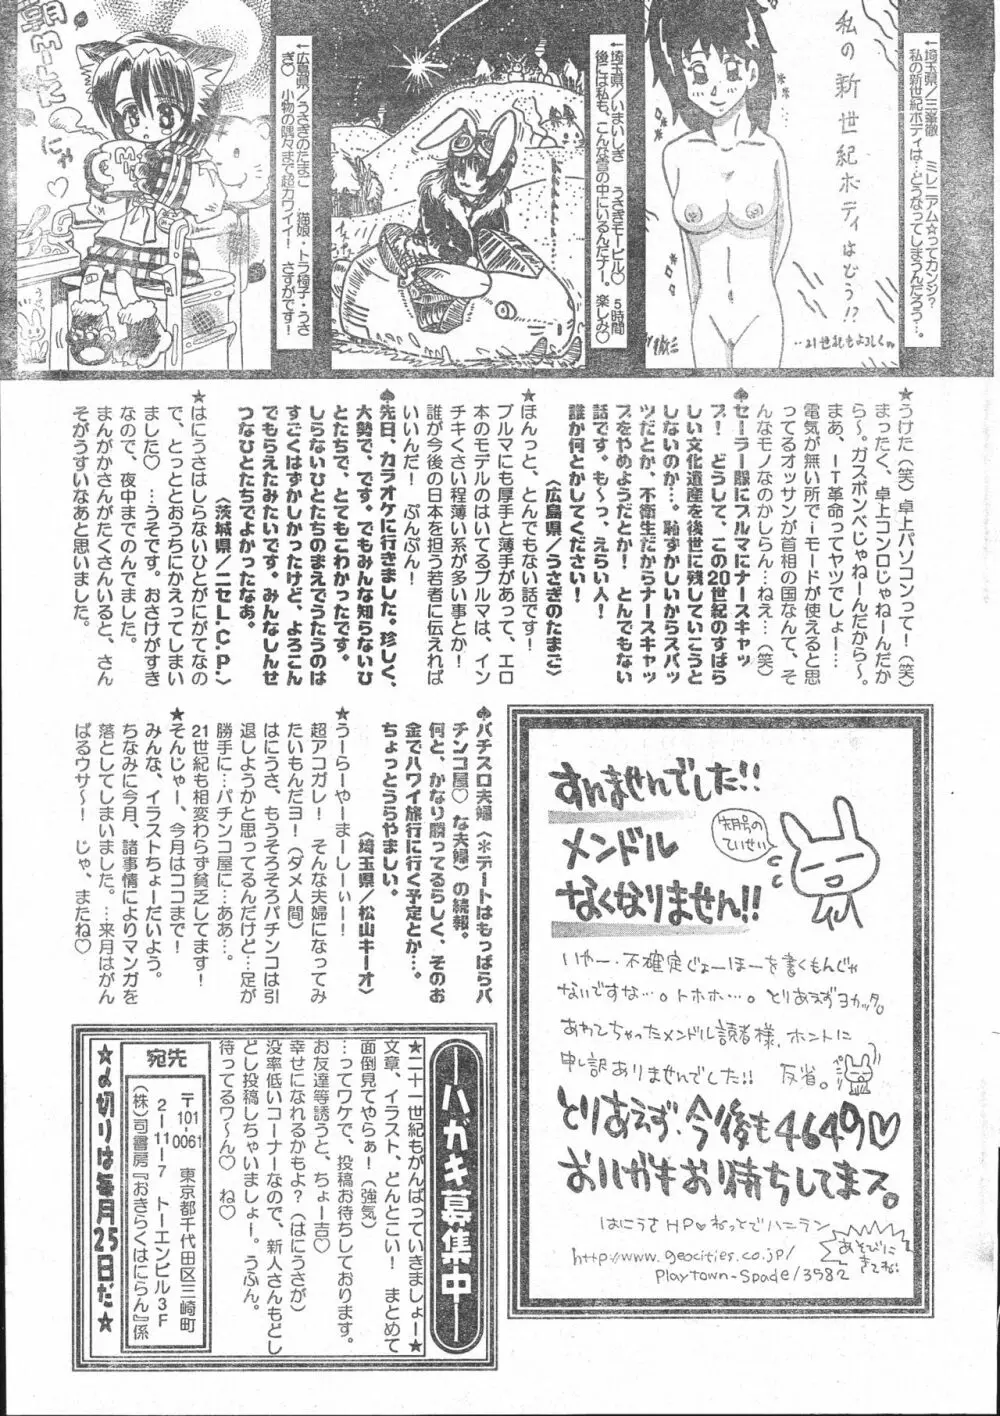 ←埼玉県/三峯徹　ミレニアム☆ってカンジ?
私の新世紀ボディは…どうなってしまうんだろう…。
私の新世紀ボディはどう!?
…21世紀もよろしくね
←埼玉県/いまいしき　うさぎモービル♡　5時間
後には私も、こんな雪の中にいるんだナー。楽しみ♡
←広島県/うさぎのたまご　猫娘・トラ椅子・うさ
ぎ♡　小物の隅々まで超カワイイ!　さすがです!
にゃ♡
★うけた(笑)卓上パソコンって!(笑)
まったく、卓上コンロじゃねーんだか
ら〜。ガスボンベじゃねーんだから〜。
まあ、IT革命ってヤツでしょー…
電気が無い所でiモードが使えると思
ってるオッサンが首相の国なんて、そ
んなモノなのかしらん…ねえ…(笑)
♠セーラー服にブルマにナースキャッ
プ!　どうして、この20世紀のすばら
しい文化遺産を後世に残していこうと
しないのか…。恥ずかしいからスパッ
ツだとか、不衛生だからナースキャッ
プをやめようだとか!　とんでもない
話です。も〜っ、えらい人!
誰か何とかしてください!
〈広島県/うさぎのたまご〉
★ほんっと、とんでもない話です!
ブルマにも厚手と薄手があって、エロ
本のモデルのはいてるブルマは、イン
チキくさい程薄い系が多い事とか!
誰が今後の日本を担う若者に伝えれば
いいんだ!　ぷんぷん!
♠先日、カラオケに行きました。珍しく、
大勢で、です。でもみんな知らないひ
とたちで、とてもこわかったです。
しらないひとたちのまえでうたうのは
すごくはずかしかったけど、よろこん
でもらえたみたいです。みんなしんせ
つなひとたちでよかったなあ。
〈茨城県/ニセL.C.P.〉
★はにうさはしらないひとがにがてなの
で、とっととおうちにかえってしまい
ました♡　…うそです。おさけがすき
なので、夜中までのんでました。
まんがかさんがたくさんいると、さん
そがうすいなあと思いました。
♠パチスロ夫婦〈※デートはもっぱらパ
チンコ屋♡　な夫婦〉の続報。
何と、かなり勝ってるらしく、そのお
金でハワイ旅行に行く予定とか…。
ちょっとうらやましい。
〈埼玉県/松山キーオ〉
★うーらーやーまーしーぃー!
超アコガレ!　そんな夫婦になってみ
たいもんだヨ!(ダメ人間)
はにうさ、もうそろそろパチンコは引
退しようかと思ってるんだけど…足が
勝手に…パチンコ屋に…ああ…。
21世紀も相変わらず貧乏してます!
★そんじゃー、今月はココまで!
みんな、イラストちょーだいよう。
ちなみに今月、諸事情によりマンガを
落としてしまいました。…来月はがん
ばるウサ〜!　じゃ、またね♡
すいませんでした!!
先月号の
ていせい
メンドル
なくなりません!!
いやー、不確定じょーほーを書くもんじゃ
ないですな…。トホホ…。とりあえずヨカッタ。
あわてちゃったメンドル読者様、ホントに
申し訳ありませんでした!!　反省。
ペこり
とりあえず、今後も4649♡
おハガキお待ちしてまス。
はにうさHP♡ねっとでハニラン
http://www.geocities.co.jp/
Playtown-Spade/3582
あそびに
きてね♡
ハガキ募集中
★二十一世紀もがんばっていきましょー★
文章、イラスト、どんとこい!　まとめて
面倒見てやらぁ!(強気)
…ってワケで、投稿お待ちしております。
お友達等誘うと、ちょー吉♡
幸せになれるかもよ?(はにうさが)
没率低いコーナーなので、新人さんもどし
どし投稿しちゃいましょー。うふん。
待ってるワ〜ん♡　ね♡
宛先
〒101-0061　東京都千代田区三崎町
2-11-7　トーエンビル3F
(株)司書房『おきらくはにらん』係
★〆切りは毎月25日だ★